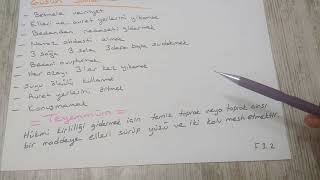 - Besmele ve niyet
- Elleri ve avret yerlerini yıkamak
- Bedenden necaseti gidermek
- Namaz abdesti almak
- 3 sağa 3 sola 3 defa başa su dökmek
- Bedeni ovuşturmak
- Her azayı 3'er kez yıkamak
- Suyu ölçülü kullanmak
- Avret yerlerini örtmek
- Konuşmamak
= Teyemmüm =
Hükmi kirliliği gidermek için temiz toprak veya toprak cinsi
bir maddeye elleri sürüp yüzü ve iki kolu meshetmektir.